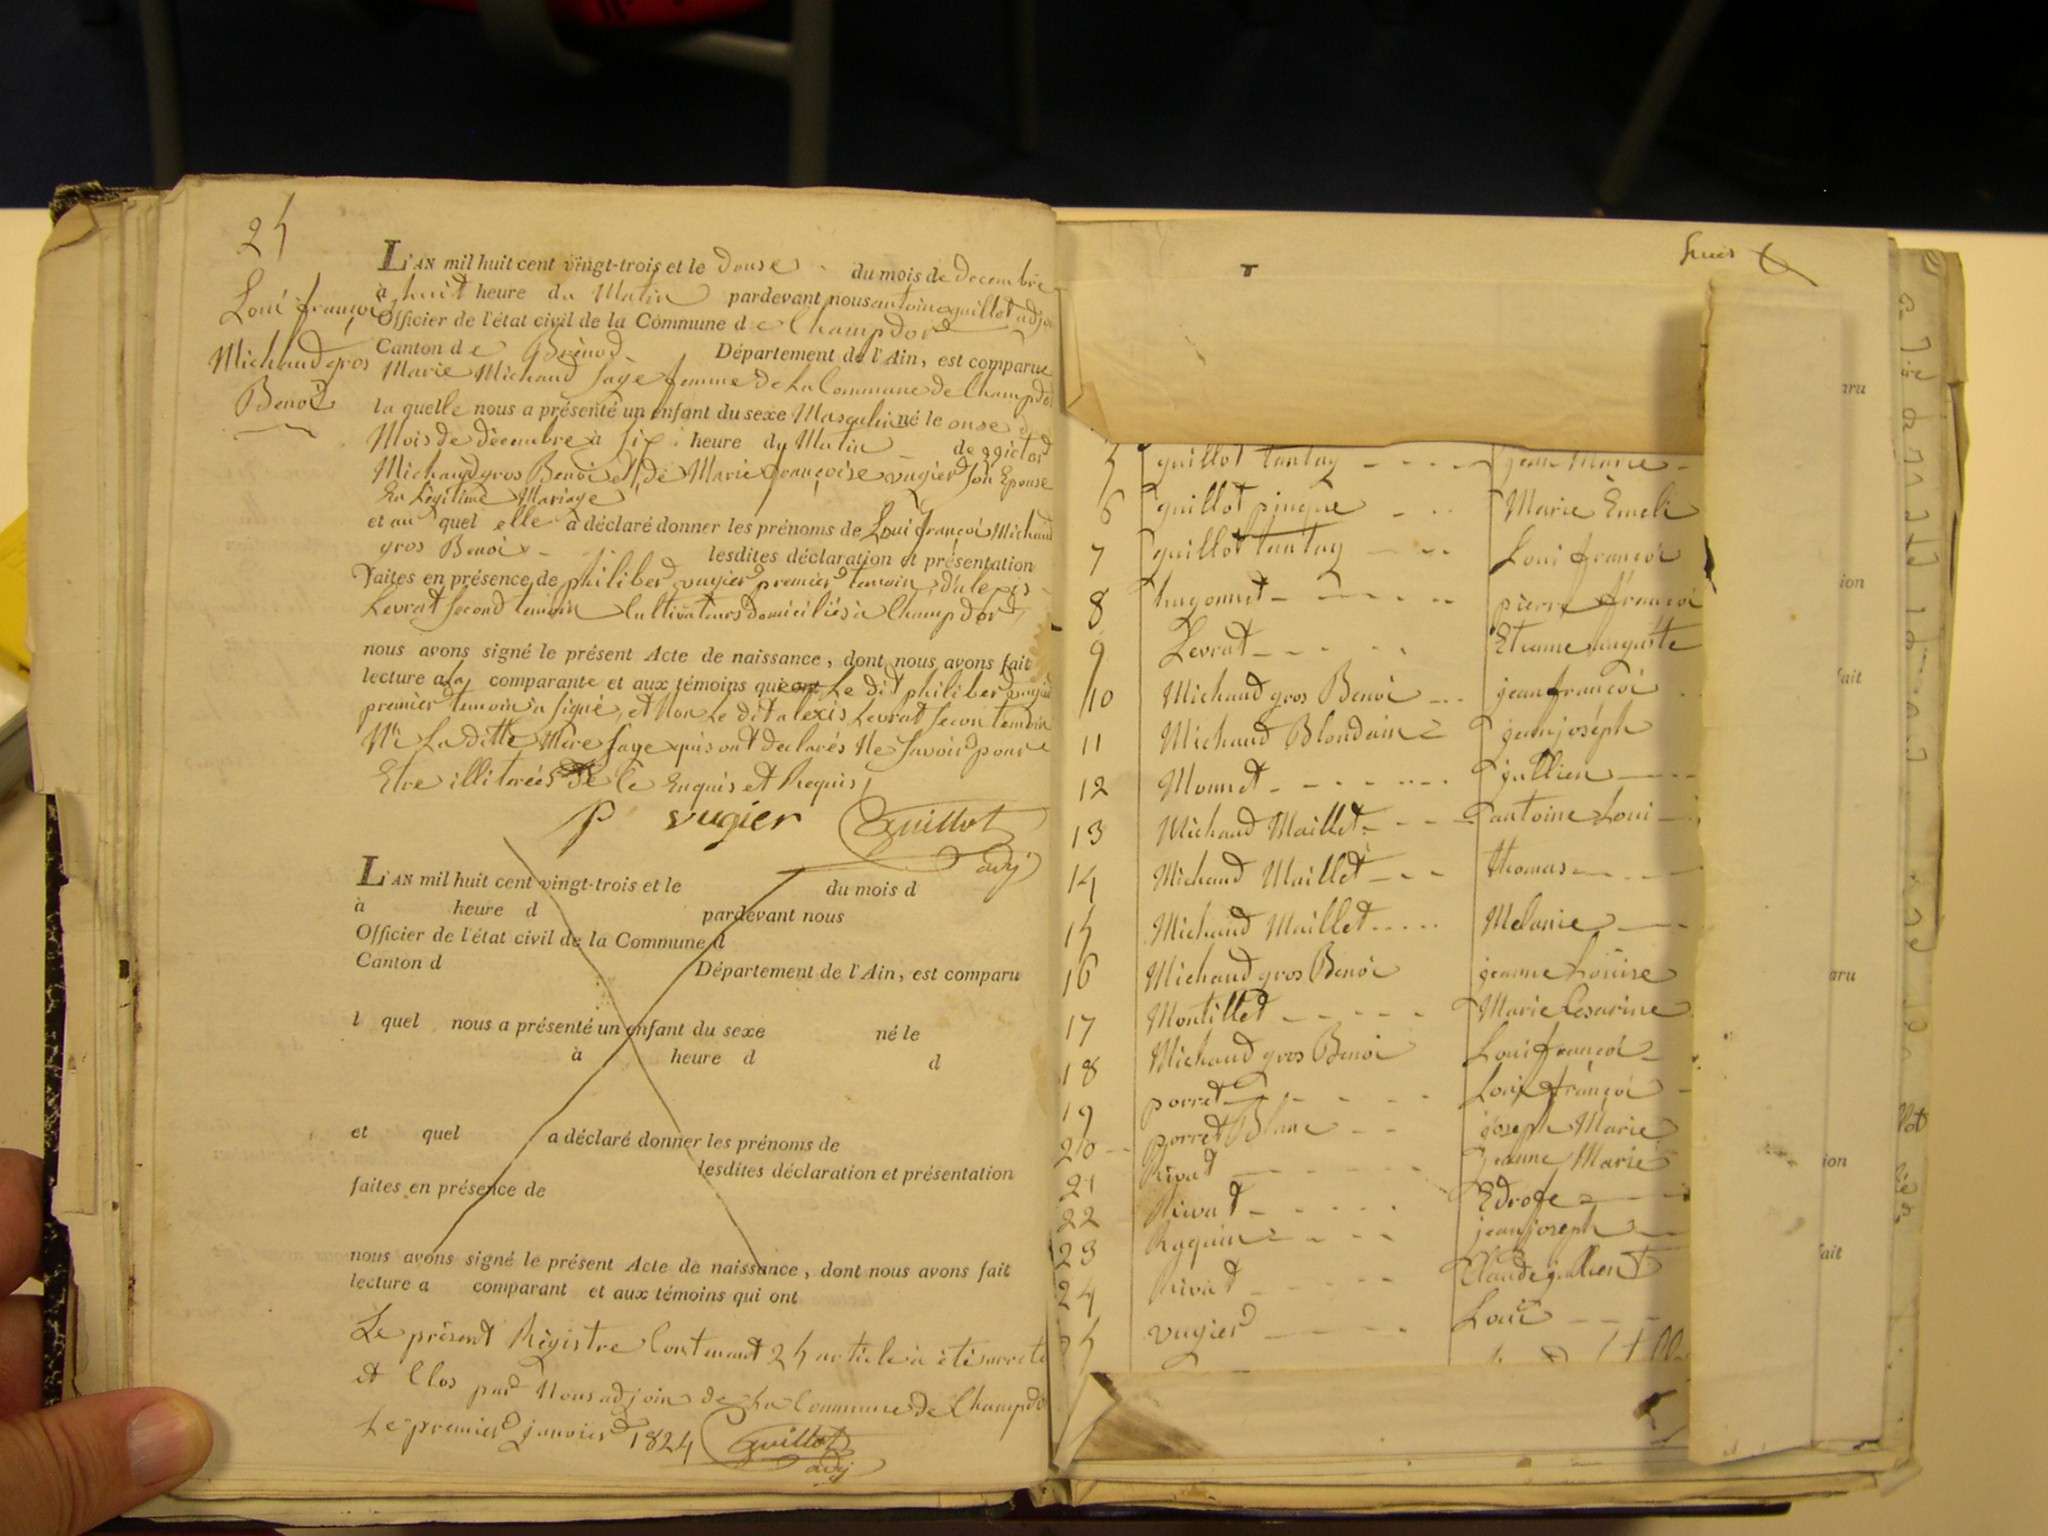 25
Loui françoi
Michaud gros
Benoi
L'AN mil huit cent vingt-trois et le douse du mois de decembre
à huit heure du Matin pardevant nous antoine guillot adjoi
Officier de l'état civil de la Commune de Champdor
Canton de Brenod Département de l'Ain, est comparue
Marie Michaud Sage femme de La Commune de Champdor
la quelle nous a présenté un enfant du sexe Masculin né le onse du
Mois de décembre à six heure du Matin de victor
Michaud gros Benoi et de Marie françoise vugier son Epouse
En Légitime Mariage
et au quel elle a déclaré donner les prénoms de Loui françoi Michaud
gros Benoi lesdites déclaration et présentation
faites en présence de philiberd vugier premier temoin, d'alexis
Levrat second temoin Cultivateurs domiciliés à Champdor
nous avons signé le présent Acte de naissance, dont nous avons fait
lecture a La comparante et aux témoins qui ont Le dit philiberd vugier
premier temoin a signé, et Non Le dit alexis Levrat secon temoin
Ni La ditte Mère sage puis ont declarés Ne savoir pour
Etre illitrées De Ce Enquis et Requis
P vugier Guillot
adj
L'AN mil huit cent vingt-trois et le du mois d
à heure d pardevant nous
Officier de l'état civil de la Commune d
Canton d Département de l'Ain, est comparu
l quel nous a présenté un enfant du sexe né le
à heure d d
et quel a déclaré donner les prénoms de
lesdites déclaration et présentation
faites en présence de
nous avons signé le présent Acte de naissance, dont nous avons fait
lecture a comparant et aux témoins qui ont
Le présent Régistre Contenant 25 article a été arreté
et Clos par Nous adjoin de La Commune de Champdor
Le premier janvier 1824 Guillot
adj
5 guillot tantay jean Marie
6 guillot pingue Marie Emeli
7 guillot tantay Loui françoi
8 hugonnet pierre françoi
9 Levrat Etienne auguste
10 Michaud gros Benoi jean françoi
11 Michaud Blondain jean joseph
12 Monnet jullien
13 Michaud Maillet antoine Loui
14 Michaud Maillet thomas
15 Michaud Maillet Melanie
16 Michaud gros Benoi jeanne Louise
17 Montillet Marie Cesarine
18 Michaud gros Benoi Loui françoi
19 porret Loui françoi
20 porret Blanc joseph Marie
21 Rivat jeanne Marie
22 Rivat Edroge
23 Raguin jean joseph
24 Rivat Claude jullien
25 vugier Loui
aru
ion
fait
aru
ion
fait